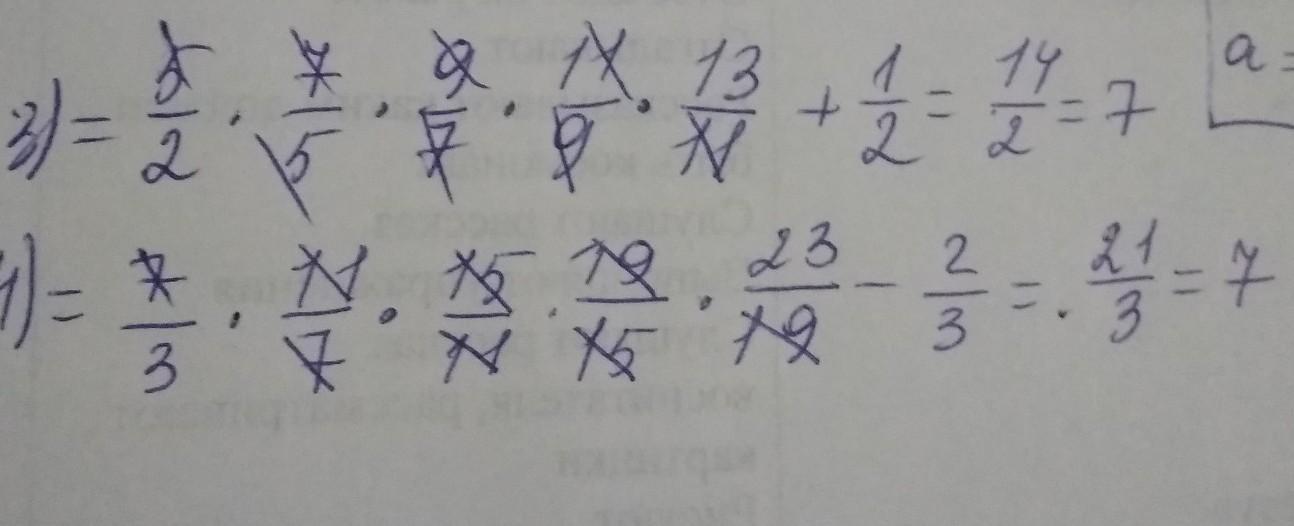 3) = 5/2 · 7/5 · 9/7 · 11/9 · 13/11 + 1/2 = 14/2 = 7
a =
1) = 7/3 · 11/7 · 15/11 · 19/15 · 23/19 - 2/3 = . 21/3 = 7